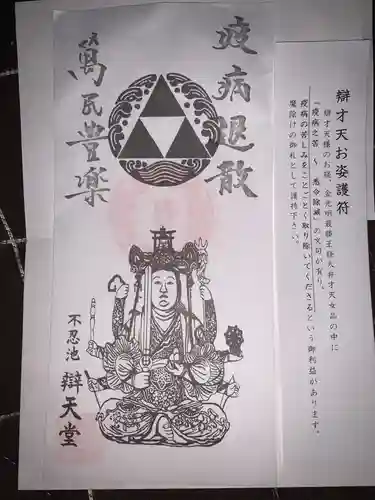 疫病退散
萬民豊楽
不忍池 辯天堂
辯才天お姿護符
辯才天様のお経、金光明最勝王経大弁才天女品の中に
「疫病之苦 〜 悉令除滅」の文句が有り、
疫病の苦しみをことごとく取り除いてくださるという御利益があります。
魔除けの御札として護持下さい。